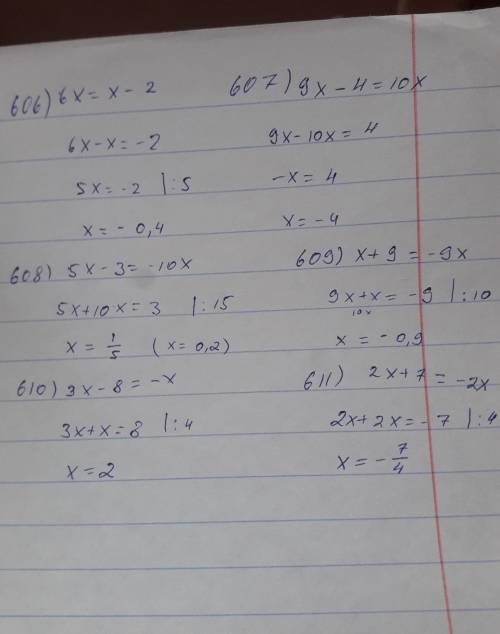 606) 6x = x - 2
6x - x = -2
5x = -2 | : 5
x = - 0,4
607) 9x - 4 = 10x
9x - 10x = 4
-x = 4
x = -4
608) 5x - 3 = -10x
5x + 10x = 3 | : 15
x = 1/5 (x = 0,2)
609) x + 9 = -9x
9x + x = -9 | : 10
10x
x = - 0,9
610) 3x - 8 = -x
3x + x = 8 | : 4
x = 2
611) 2x + 7 = -2x
2x + 2x = -7 | : 4
x = - 7/4